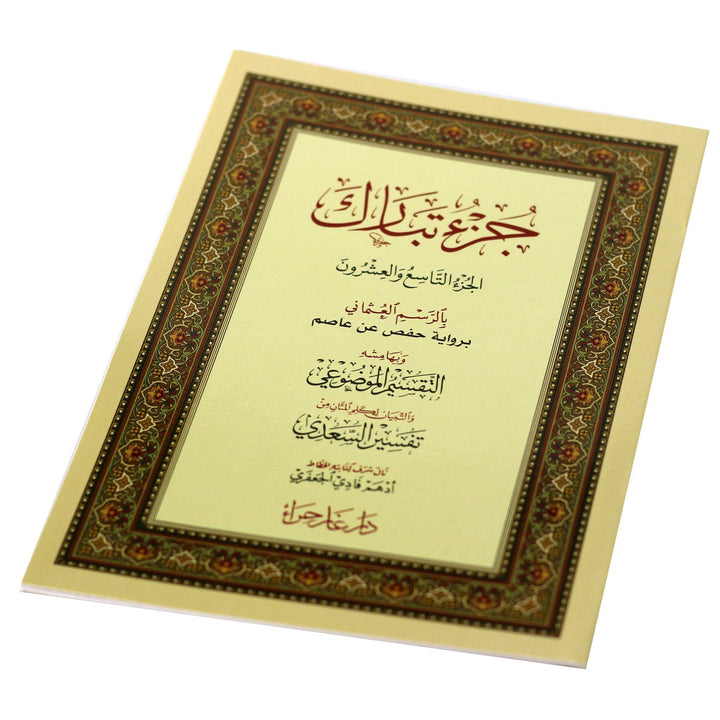 جُزْءُ تَبَارَكَ
الجُزْءُ التَّاسِعُ وَالعِشْرُونَ
بِالرَّسْمِ العُثْمَانِي
برواية حفص عن عاصم
وَبِهَامِشِهِ
التَّقْسِيْمُ المَوْضُوْعِي
وَالتِّبْيَان لِكَلِمِ المَثَانِ مِنْ
تَفْسِيْرِ السَّعْدِي
نَالَ شَرَفَ كِتَابَتِهِ الخَطَّاط
أدهم فادي الجعفري
دار غار حراء